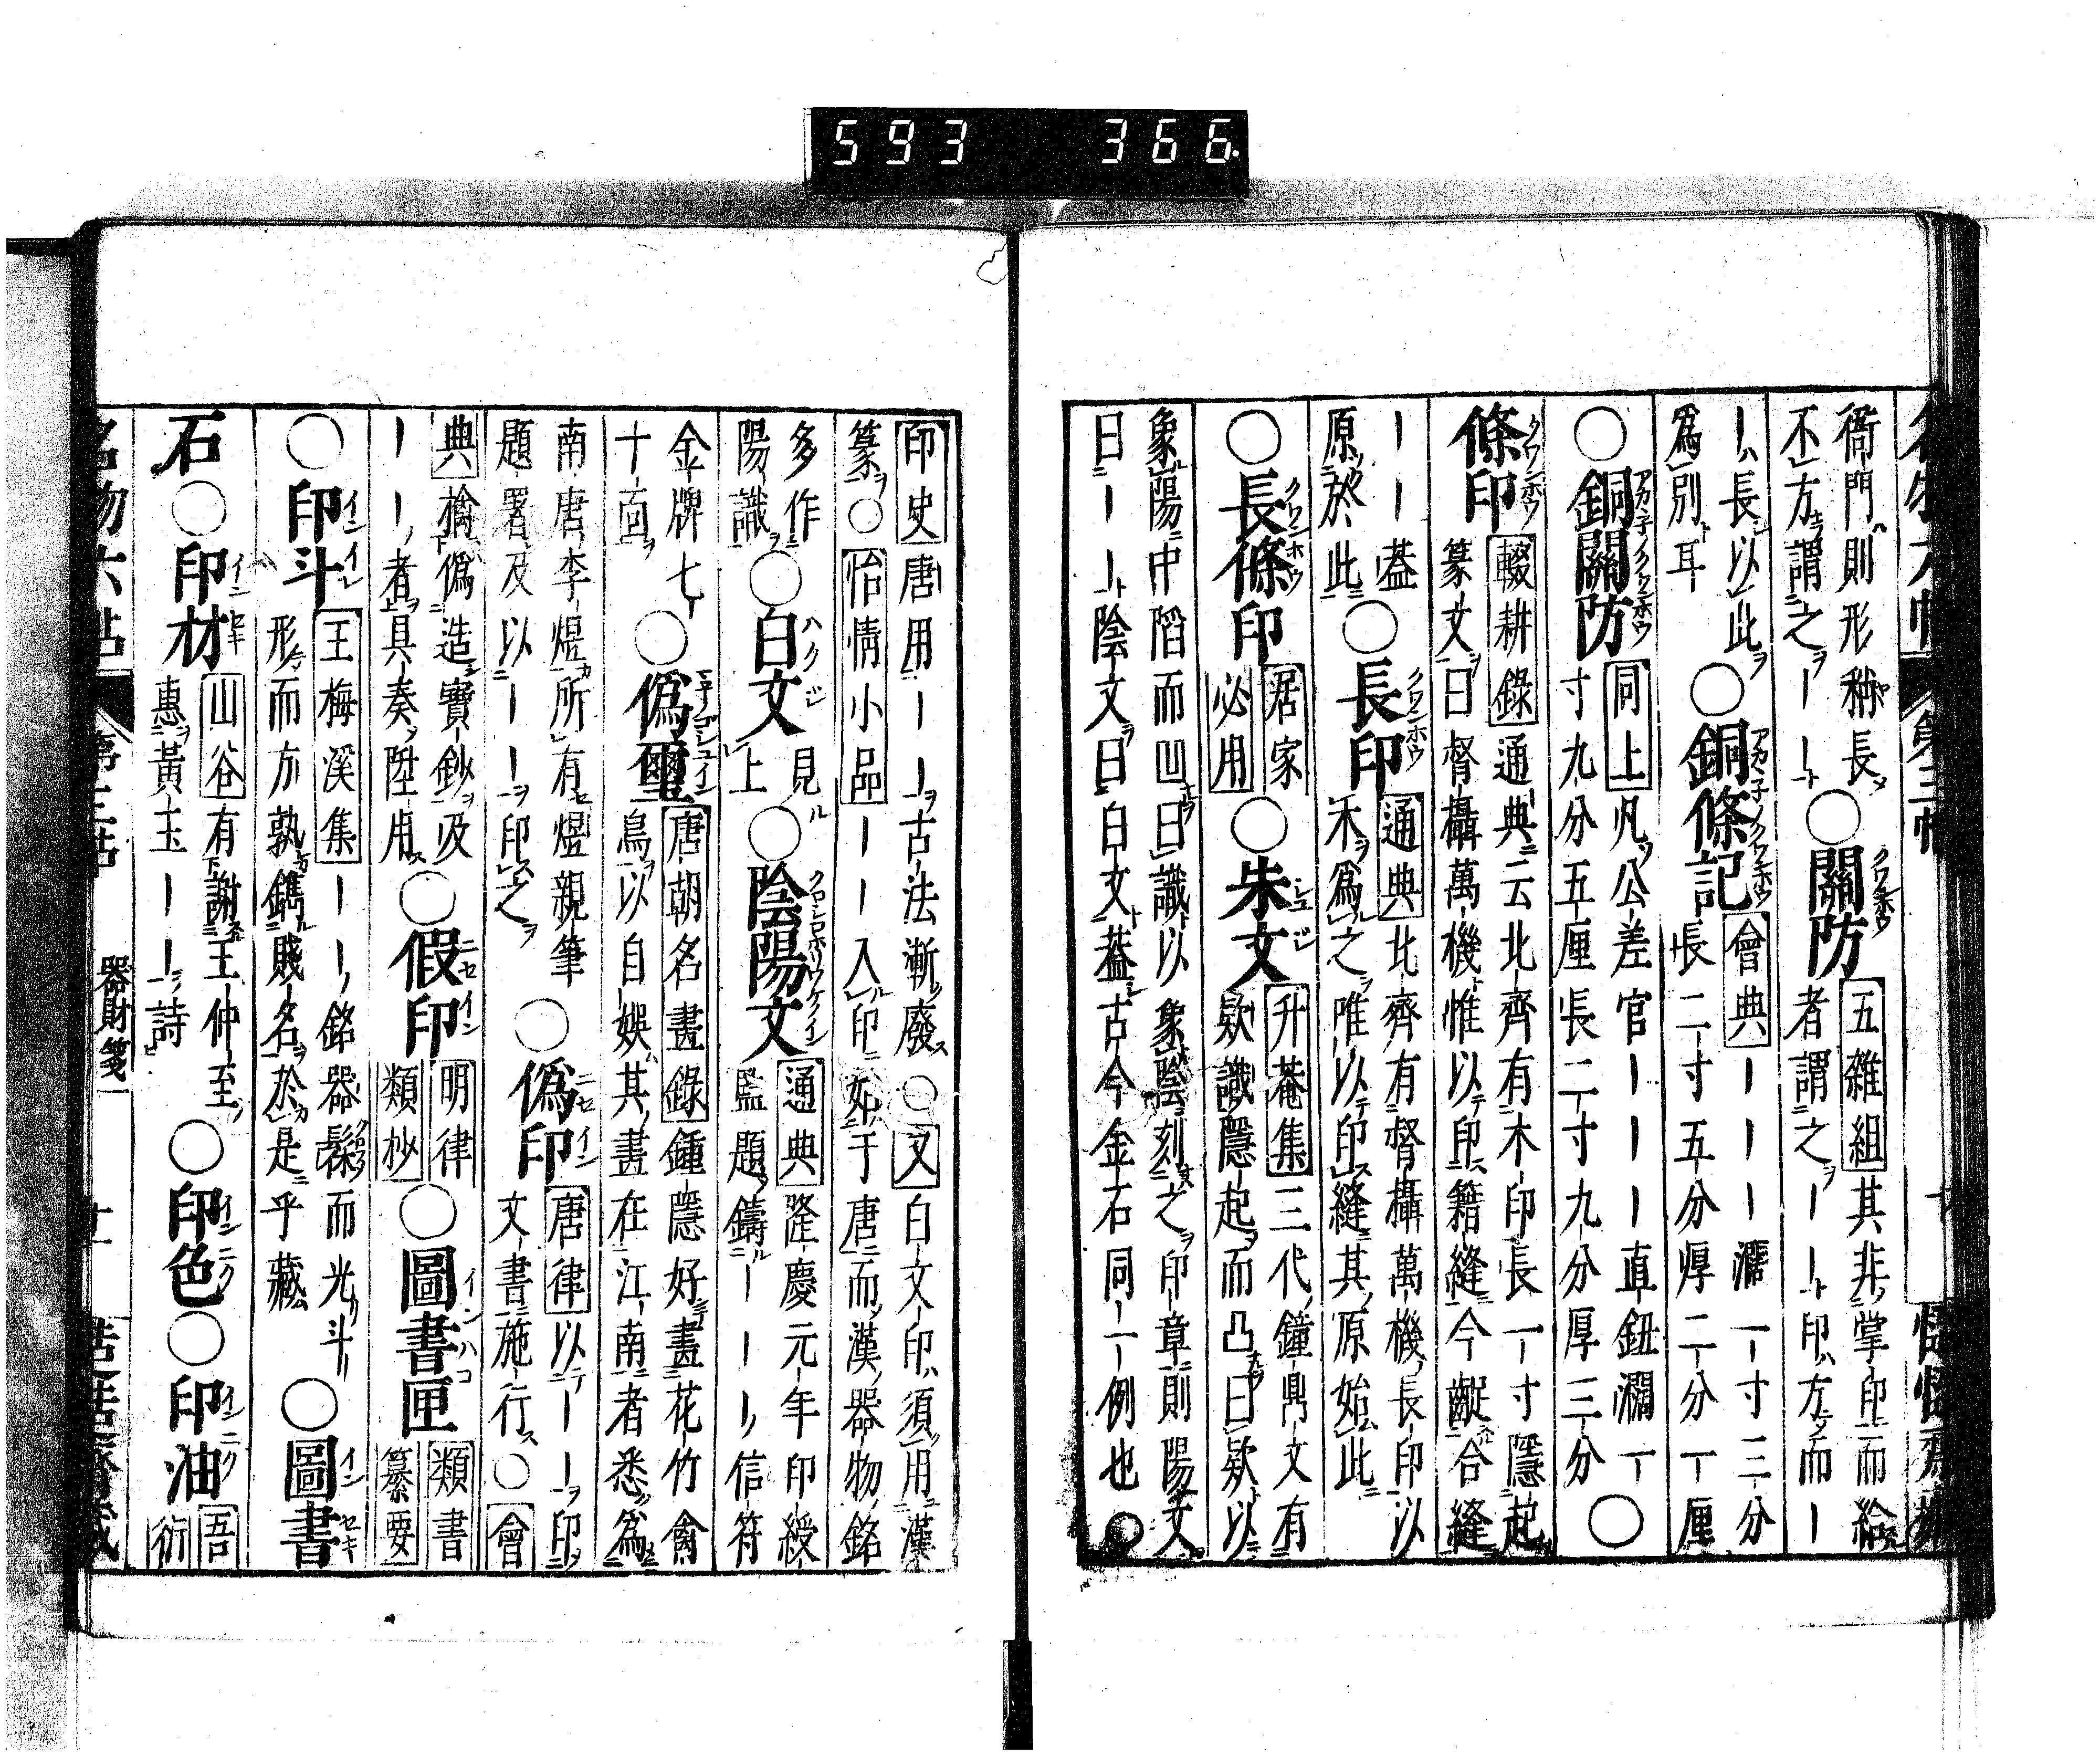 衙門則形稍長不方謂之｜｜○關防五雜組其非掌印而給者謂之｜｜印方而｜
｜長以此爲別耳○銅條記會典｜｜｜濶一寸三分長二寸五分厚二分一厘
○銅關防同上凡公差官｜｜｜直鈕濶一寸九分五厘長二寸九分厚三分○
條印輟耕錄通典云北齊有木印長一寸隱起篆文曰督攝萬機惟以印籍縫今齪合縫
｜｜蓋原於此○長印通典北齊有督攝萬機長印以木爲之唯以印縫其原始此
○長條印居家必用○朱文升菴集三代鐘鼎文有欵識隱起而凸曰欵以
象陽中陷而凹曰識以象陰刻之印章則陽文曰｜｜陰文曰白文蓋古今金石同一例也○
印史唐用｜｜古法漸廢○又白文印須用漢篆○怡情小品｜｜入印如于唐而漢器物銘
多作陽識○白文見上○陰陽文通典隆慶元年印綬監題鑄｜｜信符
金牌七十面○僞璽唐朝名畫錄鍾隱好畫花竹禽鳥以自娛其畫在江南者悉爲
南唐李煜所有煜親筆題署及以｜｜印之○僞印唐律以｜｜印文書施行○會
典擒僞造寶鈔及｜｜者具奏陞用○假印明律類抄○圖書匣類書纂要
○印斗王梅溪集｜｜銘器髹而光斗形而方孰鐫賤名於是乎藏○圖書
石○印材山谷有謝王仲至惠黃玉｜｜詩○印色○印油吾衍
名物六帖 第三帖 器財箋一 十一
593 366